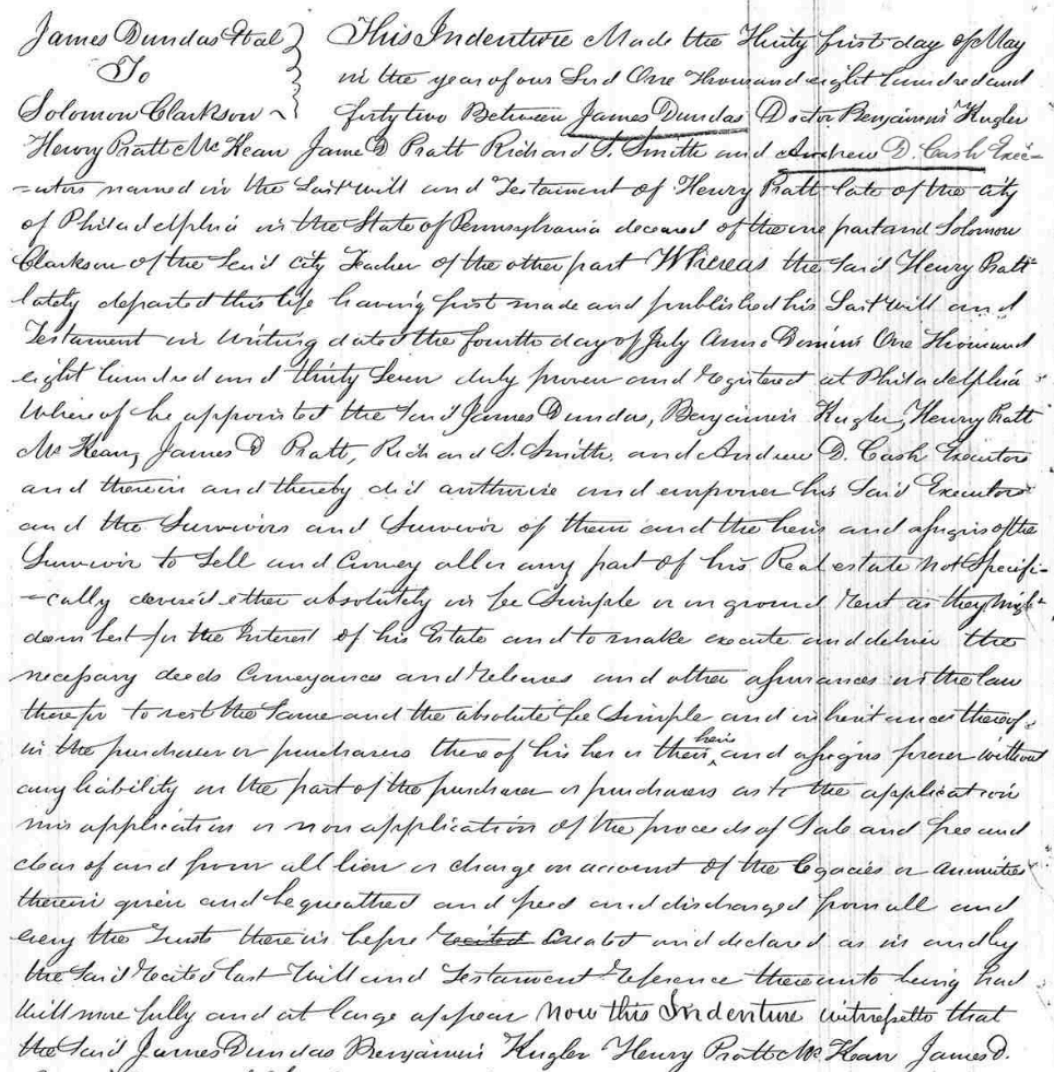 James Dundas et al } This Indenture Made the Thirty first day of May
To in the year of our Lord One Thousand eight hundred and
Solomon Clarkson ~ forty two Between James Dundas Doctor Benjamin Kugler
Henry Pratt McKean James D Pratt Richard S. Smith and Andrew D. Cash Exec=
=utors named in the Last will and Testament of Henry Pratt late of the City
of Philadelphia in the State of Pennsylvania deceased of the one part and Solomon
Clarkson of the Said City Teacher of the other part Whereas the Said Henry Pratt
lately departed this life having first made and published his Last Will and
Testament in Writing dated the fourth day of July Anno Domini One Thousand
eight hundred and thirty Seven duly proven and registered at Philadelphia
Whereof he appointed the Said James Dundas, Benjamin Kugler, Henry Pratt
McKean, James D Pratt, Richard S. Smith, and Andrew D. Cash Executors
and therein and thereby did authorise and empower his Said Executors
and the Survivors and Survivor of them and the heirs and assigns of the
Survivor to Sell and Convey all or any part of his Real estate Not Specifi-
-cally devised either absolutely in fee Simple or on ground rent as they might
deem best for the Interest of his Estate and to make execute and deliver the
necessary deeds Conveyances and releases and other assurances in the law
therefor to vest the Same and the absolute fee Simple and inheritances thereof
in the purchaser or purchasers thereof his her or their heirs and assigns forever without
any liability on the part of the purchaser or purchasers as to the application
misapplication or nonapplication of the proceeds of Sale and free and
clear of and from all lien or charge on account of the legacies or annuities
therein given and bequeathed and freed and discharged from all and
every the Trusts therein before recited Created and declared as in and by
the Said recited last Will and Testament Reference thereunto being had
Will more fully and at large appear Now this Indenture witnesseth that
the Said James Dundas Benjamin Kugler Henry Pratt McKean James D.